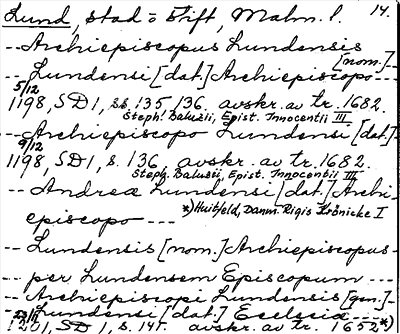 Lund, stad o Stift, Malm. l. 14.
-- Archiepiscopus Lundensis [nom.]--
-- Lundensi [dat.] Archiepiscopo --
5/12
1198, SD 1, ss. 135, 136. avskr. av tr. 1682.
Steph. Baluzii, Epist. Innocentii III
-- Archiepiscopo Lundensi [dat.]--
9/12
1198, SD 1, s. 136, avskr. av tr. 1682.
Steph. Baluzii, Epist. Innocentii III
-- Andreæ Lundensi [dat.] Archi-
episcopo --- *) Huitfeld, Danm. Rigis Krönicke I
-- Lundensis [nom.] Archiepiscopus --
-- per Lundensem Episcopum ---
-- Archiepiscopi Lundensis [gen.]--
-- Lundensi [dat.] Ecclesiæ ---
23/11
1201, SD 1, s. 145. avskr. av tr. 1652 *)